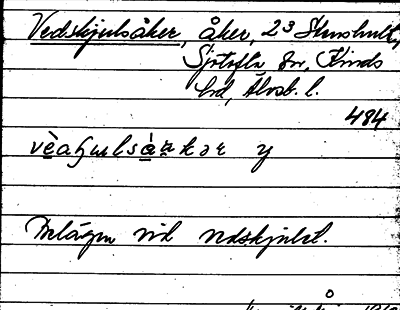 Vedskjulsåker, åker, 2³ Stenshult,
Sjötofta sn, Kinds
hd, Älvsb. l.
484
Belägen vid vedskjulet.